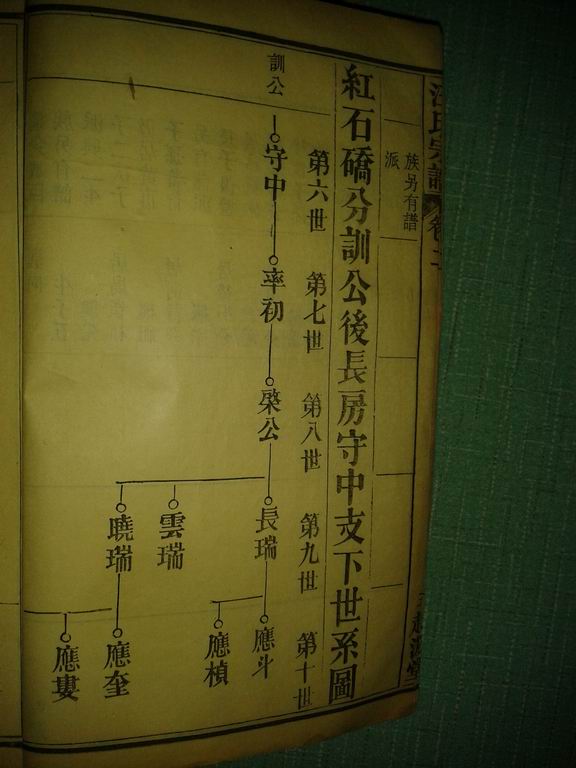 族另有譜
派
紅石礄分訓公後長房守中支下世系圖
第六世
第七世
第八世
第九世
第十世
訓公
守中
率初
棨公
長瑞
雲瑞
曉瑞
應斗
應楨
應奎
應婁